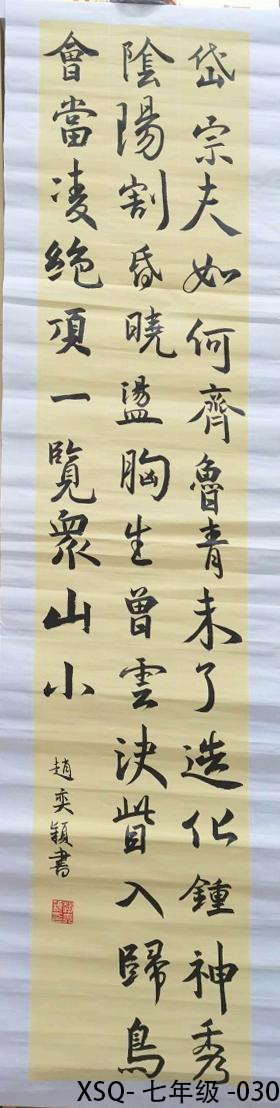 岱宗夫如何齊魯青未了造化鍾神秀
陰陽割昏曉盪胸生曾雲決眥入歸鳥
會當凌絶頂一覽眾山小
趙奕穎書
XSQ- 七年级 -030